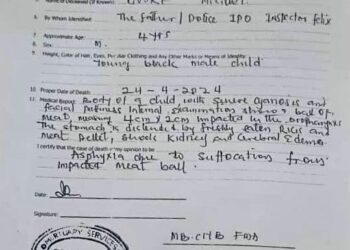 By Whom Identified: The Father / Police IPO Inspector Felix
7. Approximate Age: 4 yrs
8. Sex: M.
9. Height, Color of Hair, Eyes, Particular Clothing and Any Other Marks or Means of Identity
Young black male child
10. Proper Date of Death: 24 - 4 - 2024
11. Medical Report: Body of a child, with severe cyanosis and
facial puffiness internal examination shows a ball of
meat, measuring 4cm x 2cm impacted in the oropharynx
The stomach is distended by freshly eaten Rice and
meat kidney and Cerebral Edema.
I certify that the cause of death in my opinion to be
Asphyxia due to Suffocation from
impacted meat ball.
Date:
Signature:
MORTUARY SERVICES